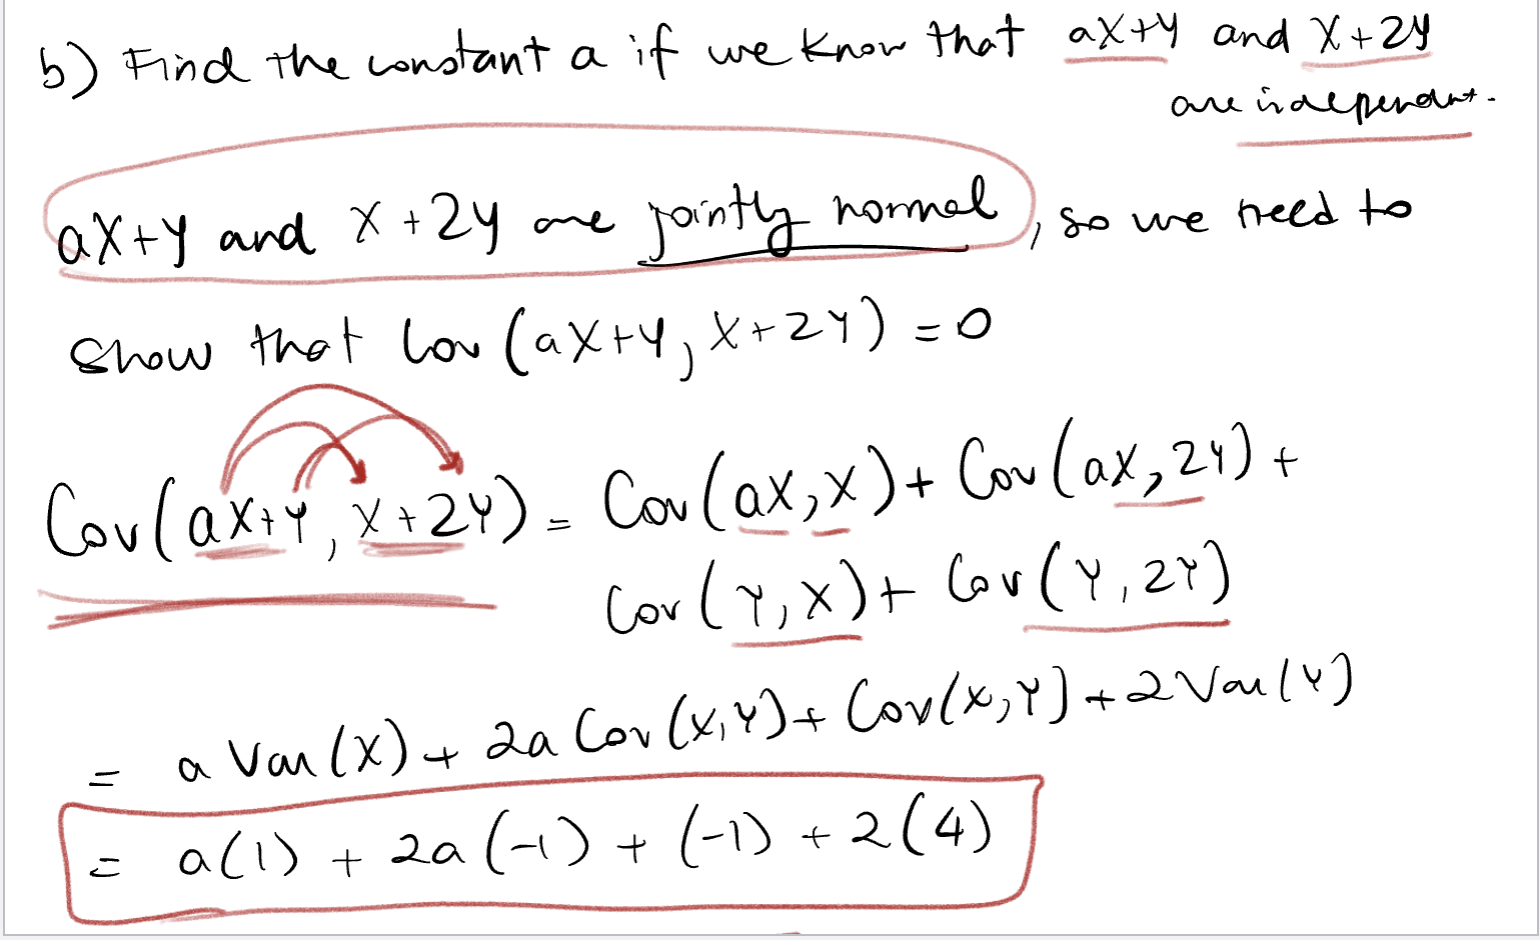 b) Find the constant a if we know that aX+Y and X+2Y
are independent.
aX+Y and X+2Y are jointly normal, so we need to
show that Cov(aX+Y, X+2Y) = 0
Cov(aX+Y, X+2Y) = Cov(aX,X) + Cov(aX,2Y) +
Cov(Y,X) + Cov(Y,2Y)
= a Var(X) + 2a Cov(X,Y) + Cov(X,Y) + 2Var(Y)
= a(1) + 2a(-1) + (-1) + 2(4)